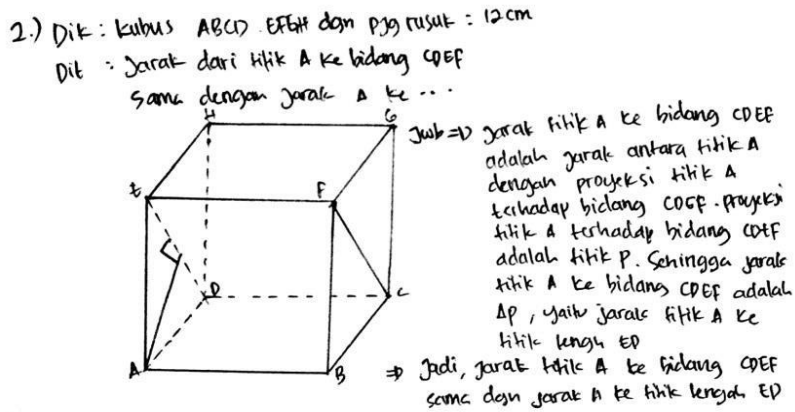 2.) Dik : kubus ABCD EFGH dgn pjg rusuk : 12 cm
Dit : Jarak dari titik A ke bidang CDEF
sama dengan jarak A ke ...
H
G
E
F
D
C
A
B
Jwb => Jarak titik A ke bidang CDEF
adalah jarak antara titik A
dengan proyeksi titik A
terhadap bidang CDEF. proyeksi
titik A terhadap bidang CDEF
adalah titik P. Sehingga jarak
titik A ke bidang CDEF adalah
AP, yaitu jarak titik A ke
titik tengah ED
=> Jadi, jarak titik A ke bidang CDEF
sama dgn jarak A ke titik tengah ED